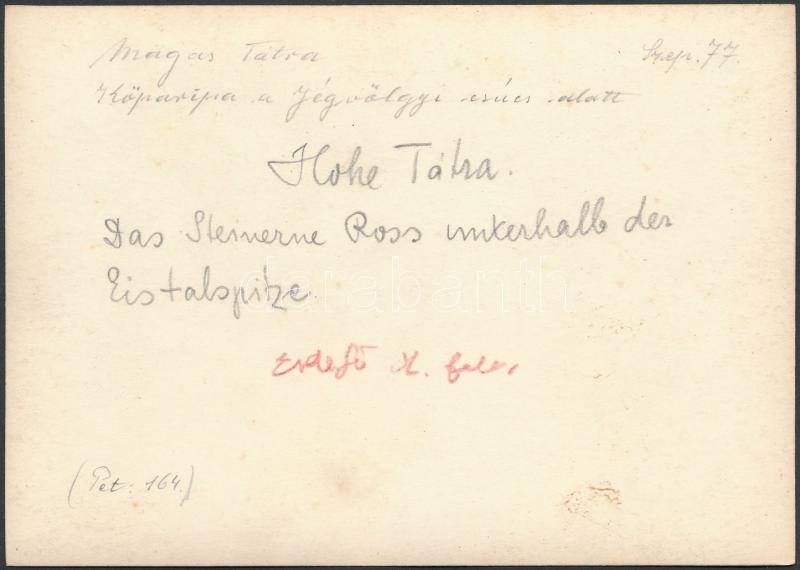 Magas Tátra Szep. 77.
Kőparipa a Jégvölgyi csúcs alatt
Hohe Tátra.
Das Steinerne Ross unterhalb der
Eistalspitze.
darabanth
(Pet: 164.)